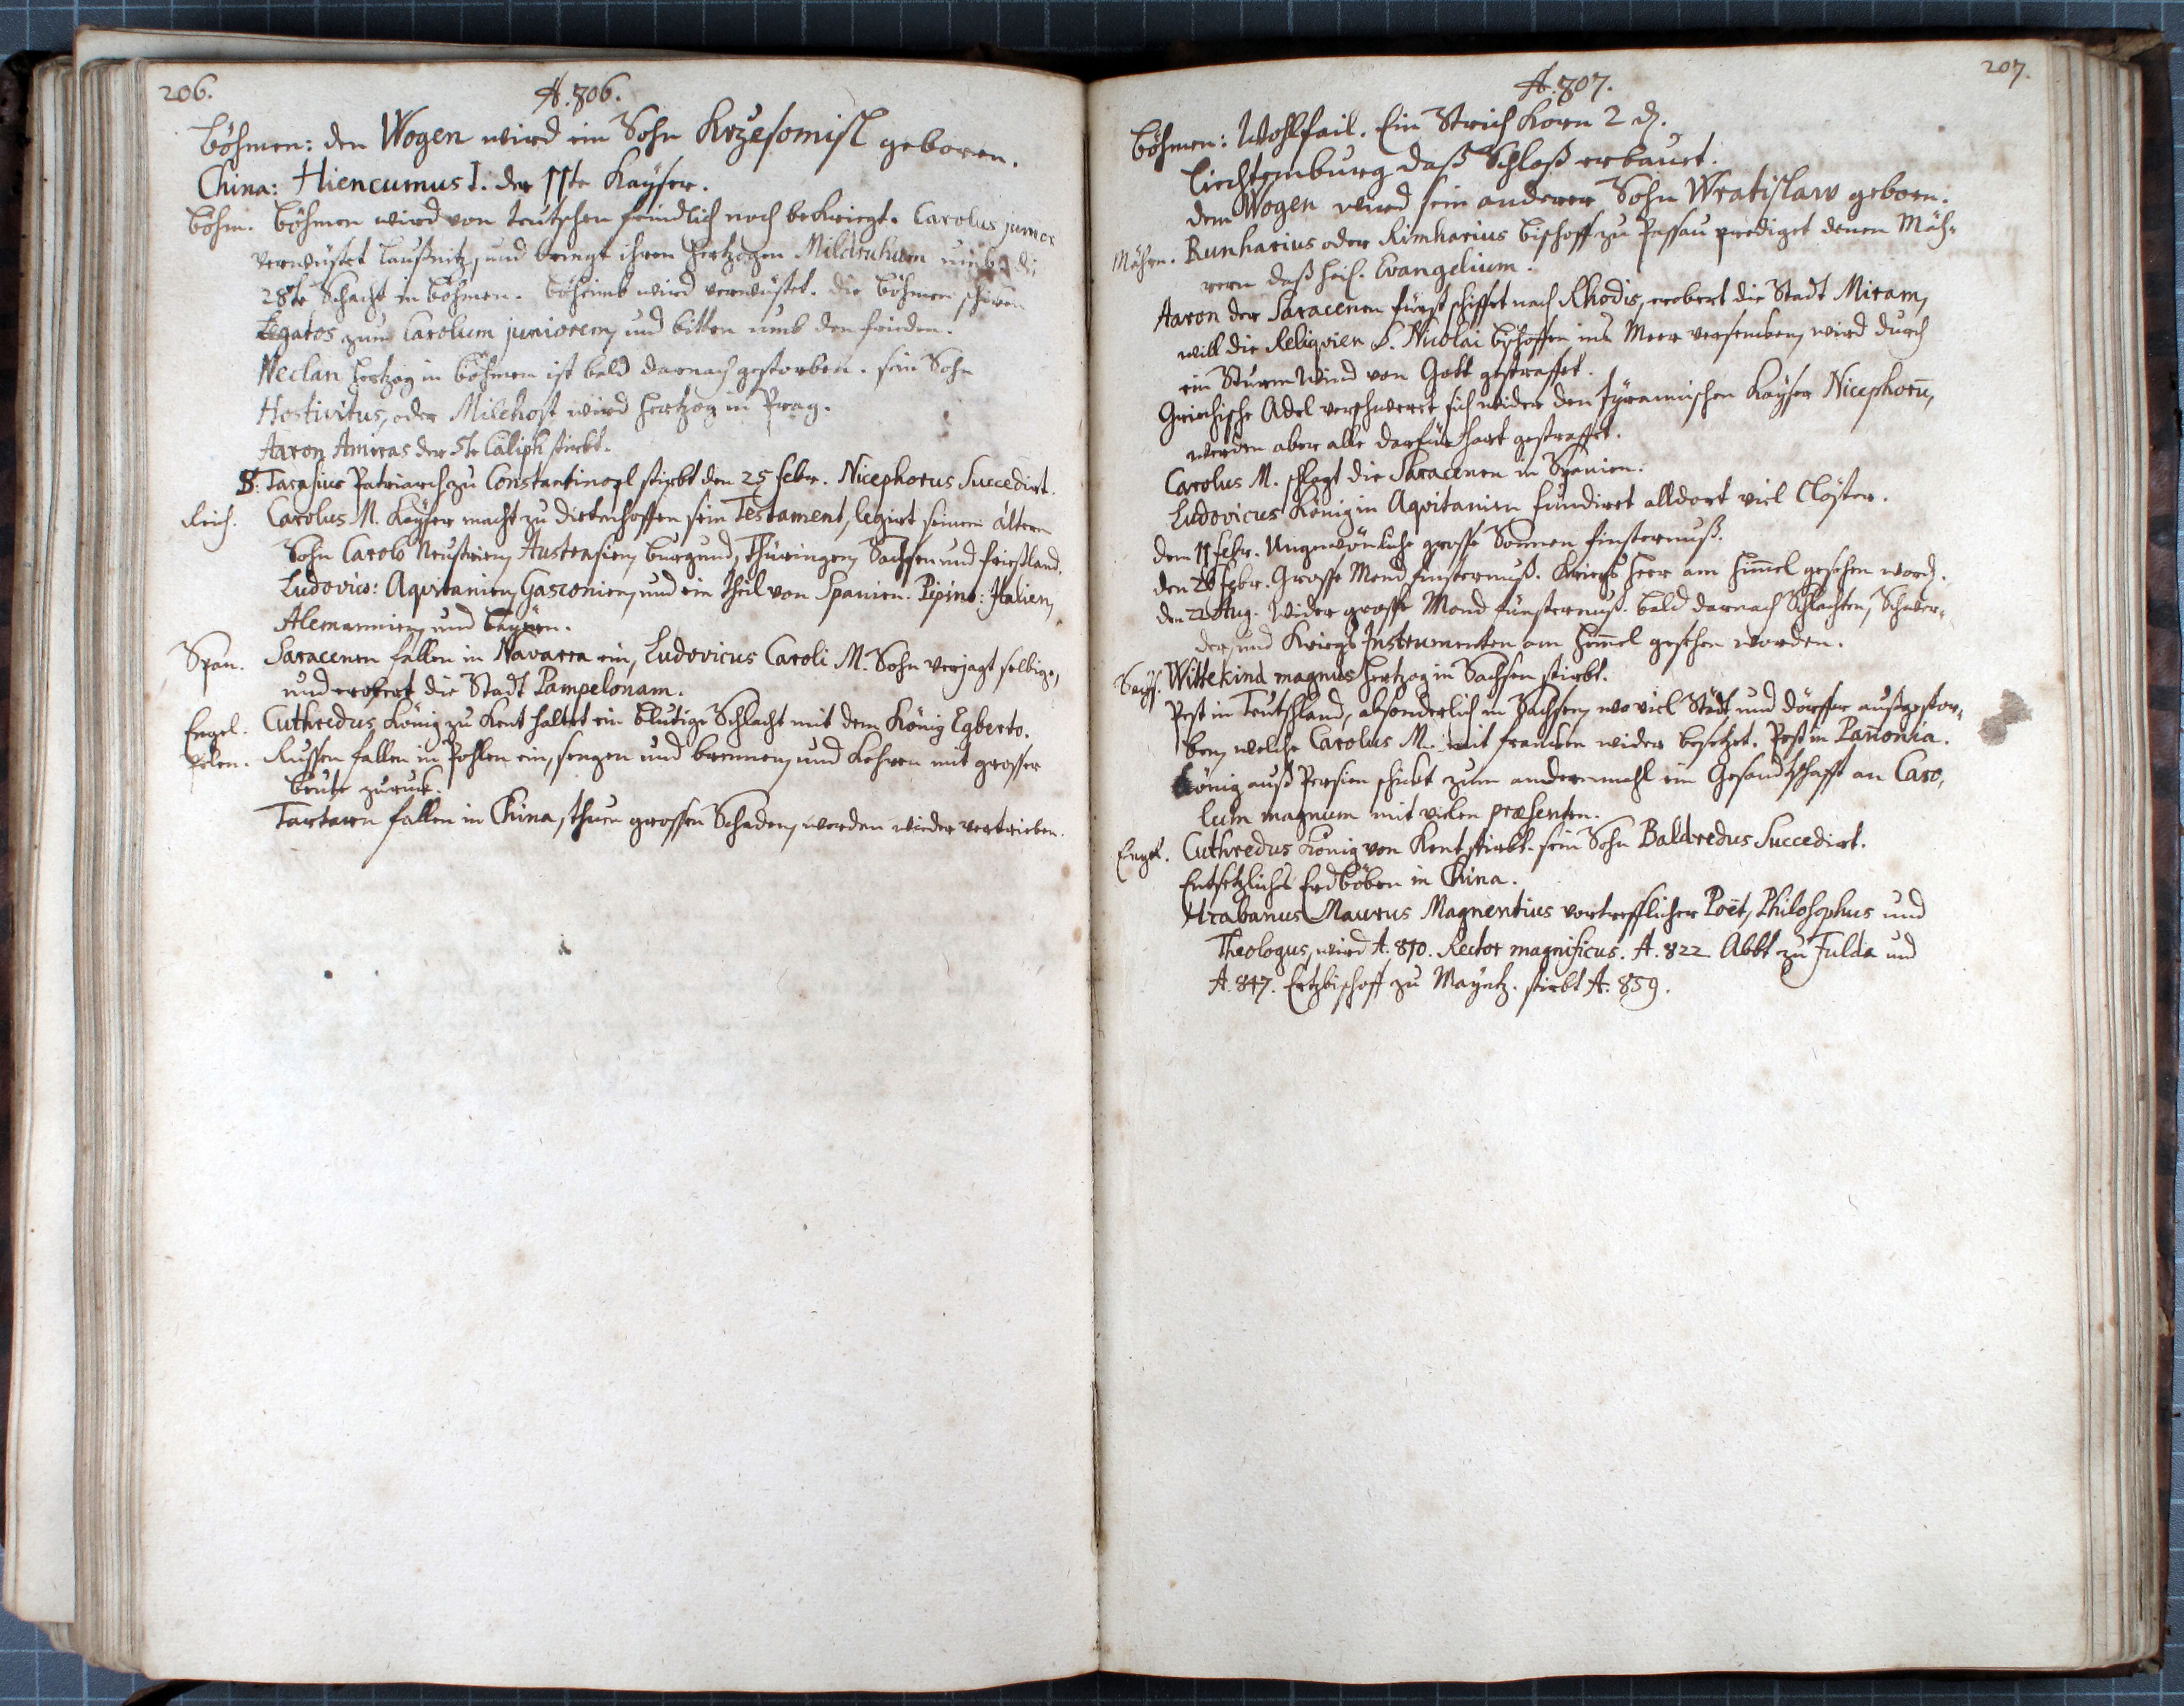 206.
A. 806.
Böhmen: den Wogen wird ein Sohn Krzesomisl geboren.
China: Hiencumus I. der 11te Kayser.
Böhm. Böhmen wird von teutschen feindlich noch bekriegt. Carolus junior
verwüstet Laußnitz, und bringt ihren Hertzogen Milduhum umb. die
28te Schacht in Böhmen. Böheimb wird verwüstet. die Böhmen schicken
Legatos zum Carolum juniorem, und bitten umb den frieden.
Neclan Hertzog in Böhmen ist bald darnach gestorben. sein Sohn
Hostivitus, oder Milehost wird Hertzog in Prag.
Aaron Amiras der 5te Caliph stirbt.
S. Tarasius Patriarch zu Constantinopl stirbt den 25 febr. Nicephorus Succedirt.
Reich. Carolus M. Kayser macht zu Dietenhoffen sein Testament, legirt seinem ältern
Sohn Carolo Neustrien, Austrasien, Burgund, Thüringen, Sachsen und frießland.
Ludovico: Aqvitanien, Gasconien, und ein theil von Spanien. Pipino: Italien,
Alemannien, und Bayern.
Span. Saracenen fallen in Navarra ein, Ludovicus Caroli M. Sohn verjagt selbige,
und erobert die Stadt Pampelonam.
Engel. Cuthredus König zu Kent haltet ein blutige Schlacht mit dem König Egberto.
Polen. Russen fallen in Pohlen ein, sengen und brennen, und kehren mit grosser
beute zuruck.
Tartarn fallen in China, thuen grossen Schaden, werden wieder vertrieben.
207.
A. 807.
Böhmen: Wohlfail. Ein Strich Korn 2 d.
Liechtemburg daß Schloß erbauet.
dem Wogen wird sein anderer Sohn Wratislaw geborn.
Mährn. Runharius oder Rimharius Bischoff zu Passau prediget denen Mäh-
rern daß heil. Evangelium.
Aaron der Saracenen fürst schiffet nach Rhodis, erobert die Stadt Miram,
will die Reliqvien S. Nicolai Bischoffen ins Meer versenken, wird durch
ein Sturm Wind von Gott gestraffet.
Griechische Adel verschweret sich wider den Tyrannischen Kayser Nicephorū,
werden aber alle darfür hart gestraffet.
Carolus M. schlagt die Saracenen in Spanien.
Ludovicus König in Aqvitanien fundiret alldort viel Clöster.
den 11 febr. Ungewönliche grosse Sonnen finsternuß.
den 26 febr. Grosse Mond finsternuß. Kriegs heer am himmel gesehen word.
den 22 Aug. Wider grosse Mond finsternuß. bald darnach Schlachten, Schwer-
der, und Kriegs Instrumenten am himmel gesehen worden.
Sachs. Wittekind magnus Hertzog in Sachsen stirbt.
Pest in Teutschland, absonderlich in Sachsen, wo viel Städt und dörffer außgestor-
ben, welche Carolus M. mit francken wider besetzet. Pest in Pannonia.
König auß Persien schickt zum andermahl ein Gesandtschafft an Caro-
lum magnum mit vielen præsenten.
Engel. Cuthredus König von Kent stirbt. sein Sohn Baldredus Succedirt.
Entsetzlichs Erdböben in China.
Hrabanus Maurus Magnentius vortrefflicher Poët, Philosophus und
Theologus, wird A. 810. Rector magnificus. A. 822 Abbt zu Fulda und
A. 847. Ertzbischoff zu Mayntz. stirbt A. 859.